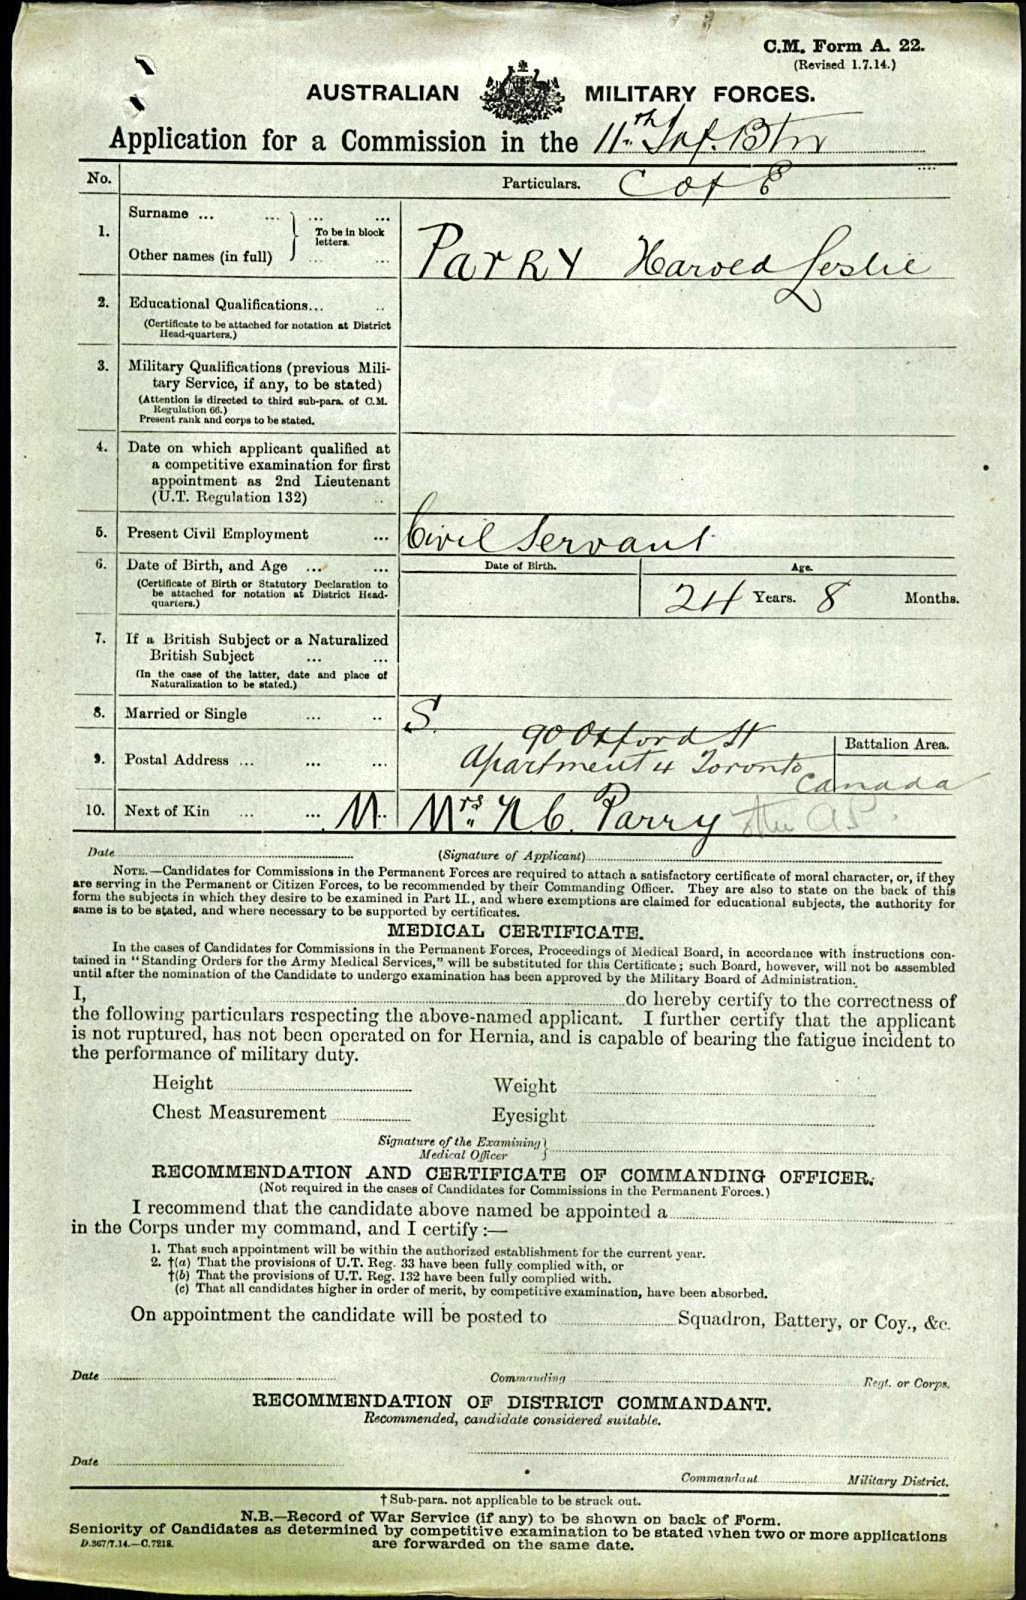 C.M. Form A. 22.
(Revised 1.7.14.)
AUSTRALIAN MILITARY FORCES.
Application for a Commission in the 11th Inf. Btn
No. Particulars. C of E
1. Surname ... ... } ... ...
To be in block letters.
Other names (in full) ... ...
PARRY Harold Leslie
2. Educational Qualifications... ..
(Certificate to be attached for notation at District
Head-quarters.)
3. Military Qualifications (previous Mili-
tary Service, if any, to be stated)
(Attention is directed to third sub-para. of C.M.
Regulation 66.)
Present rank and corps to be stated.
4. Date on which applicant qualified at
a competitive examination for first
appointment as 2nd Lieutenant
(U.T. Regulation 132) ..
5. Present Civil Employment ... Civil Servant
6. Date of Birth, and Age ... ... Date of Birth. Age.
(Certificate of Birth or Statutory Declaration to
be attached for notation at District Head-
quarters.)
24 Years. 8 Months.
7. If a British Subject or a Naturalized
British Subject ... ...
(In the case of the latter, date and place of
Naturalization to be stated.)
8. Married or Single ... .. S.
90 Oxford St
9. Postal Address ... ... ... Apartment 4 Toronto Battalion Area.
Canada
10. Next of Kin ... ... M. Mrs N C. Parry
Date (Signature of Applicant)
NOTE.—Candidates for Commissions in the Permanent Forces are required to attach a satisfactory certificate of moral character, or, if they
are serving in the Permanent or Citizen Forces, to be recommended by their Commanding Officer. They are also to state on the back of this
form the subjects in which they desire to be examined in Part II., and where exemptions are claimed for educational subjects, the authority for
same is to be stated, and where necessary to be supported by certificates.
MEDICAL CERTIFICATE.
In the cases of Candidates for Commissions in the Permanent Forces, Proceedings of Medical Board, in accordance with instructions con-
tained in "Standing Orders for the Army Medical Services," will be substituted for this Certificate; such Board, however, will not be assembled
until after the nomination of the Candidate to undergo examination has been approved by the Military Board of Administration.
I, do hereby certify to the correctness of
the following particulars respecting the above-named applicant. I further certify that the applicant
is not ruptured, has not been operated on for Hernia, and is capable of bearing the fatigue incident to
the performance of military duty.
Height Weight
Chest Measurement Eyesight
Signature of the Examining }
Medical Officer
RECOMMENDATION AND CERTIFICATE OF COMMANDING OFFICER.
(Not required in the cases of Candidates for Commissions in the Permanent Forces.)
I recommend that the candidate above named be appointed a
in the Corps under my command, and I certify :—
1. That such appointment will be within the authorized establishment for the current year.
2. †(a) That the provisions of U.T. Reg. 33 have been fully complied with, or
†(b) That the provisions of U.T. Reg. 132 have been fully complied with.
(c) That all candidates higher in order of merit, by competitive examination, have been absorbed.
On appointment the candidate will be posted to Squadron, Battery, or Coy., &c.
Date Commanding Regt. or Corps.
RECOMMENDATION OF DISTRICT COMMANDANT.
Recommended, candidate considered suitable.
Date
Commandant Military District.
† Sub-para. not applicable to be struck out.
N.B.—Record of War Service (if any) to be shown on back of Form.
Seniority of Candidates as determined by competitive examination to be stated when two or more applications
D.367/7.14.—C.7218. are forwarded on the same date.